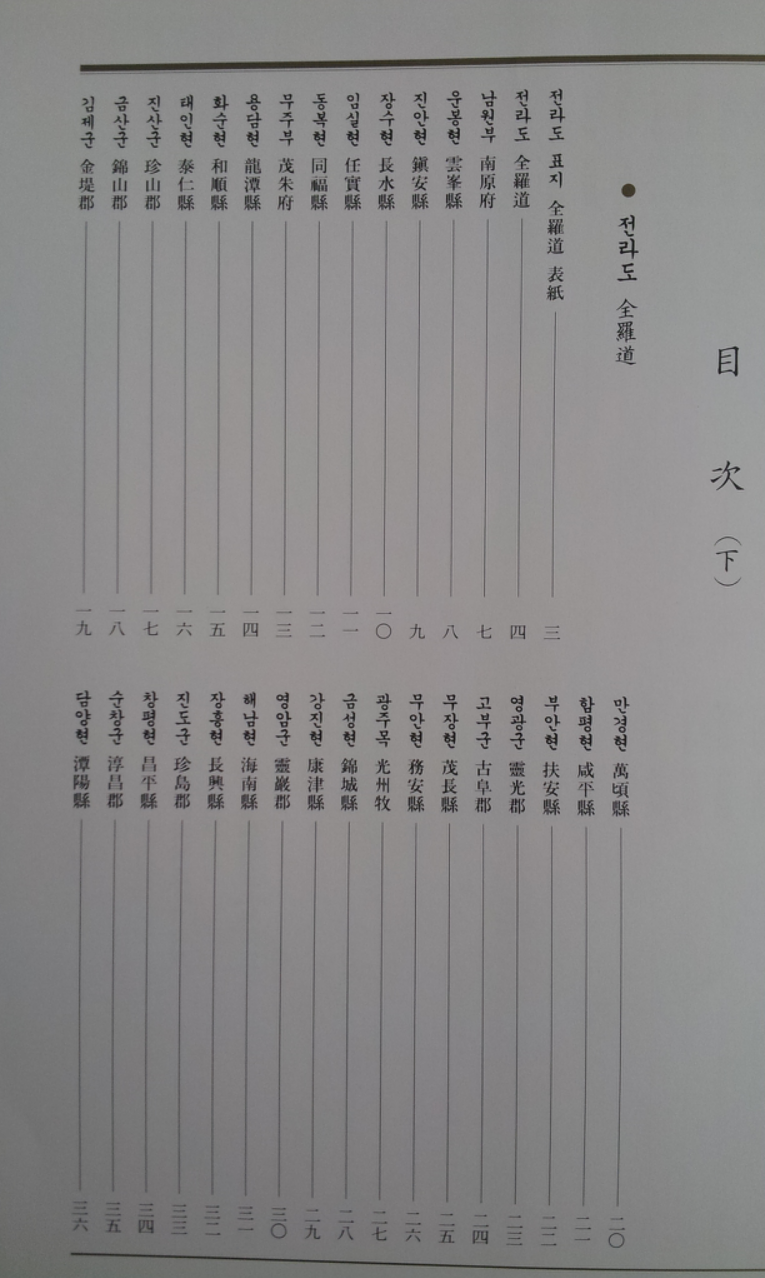 目次（下）
● 전라도 全羅道
전라도 표지 全羅道 表紙 三
전라도 全羅道 四
남원부 南原府 七
운봉현 雲峯縣 八
진안현 鎭安縣 九
장수현 長水縣 一〇
임실현 任實縣 一一
동복현 同福縣 一二
무주부 茂朱府 一三
용담현 龍潭縣 一四
화순현 和順縣 一五
태인현 泰仁縣 一六
진산군 珍山郡 一七
금산군 錦山郡 一八
김제군 金堤郡 一九
만경현 萬頃縣 二〇
함평현 咸平縣 二一
부안현 扶安縣 二二
영광군 靈光郡 二三
고부군 古阜郡 二四
무장현 茂長縣 二五
무안현 務安縣 二六
광주목 光州牧 二七
금성현 錦城縣 二八
강진현 康津縣 二九
영암군 靈巖郡 三〇
해남현 海南縣 三一
장흥현 長興縣 三二
진도군 珍島郡 三三
창평현 昌平縣 三四
순창군 淳昌郡 三五
담양현 潭陽縣 三六